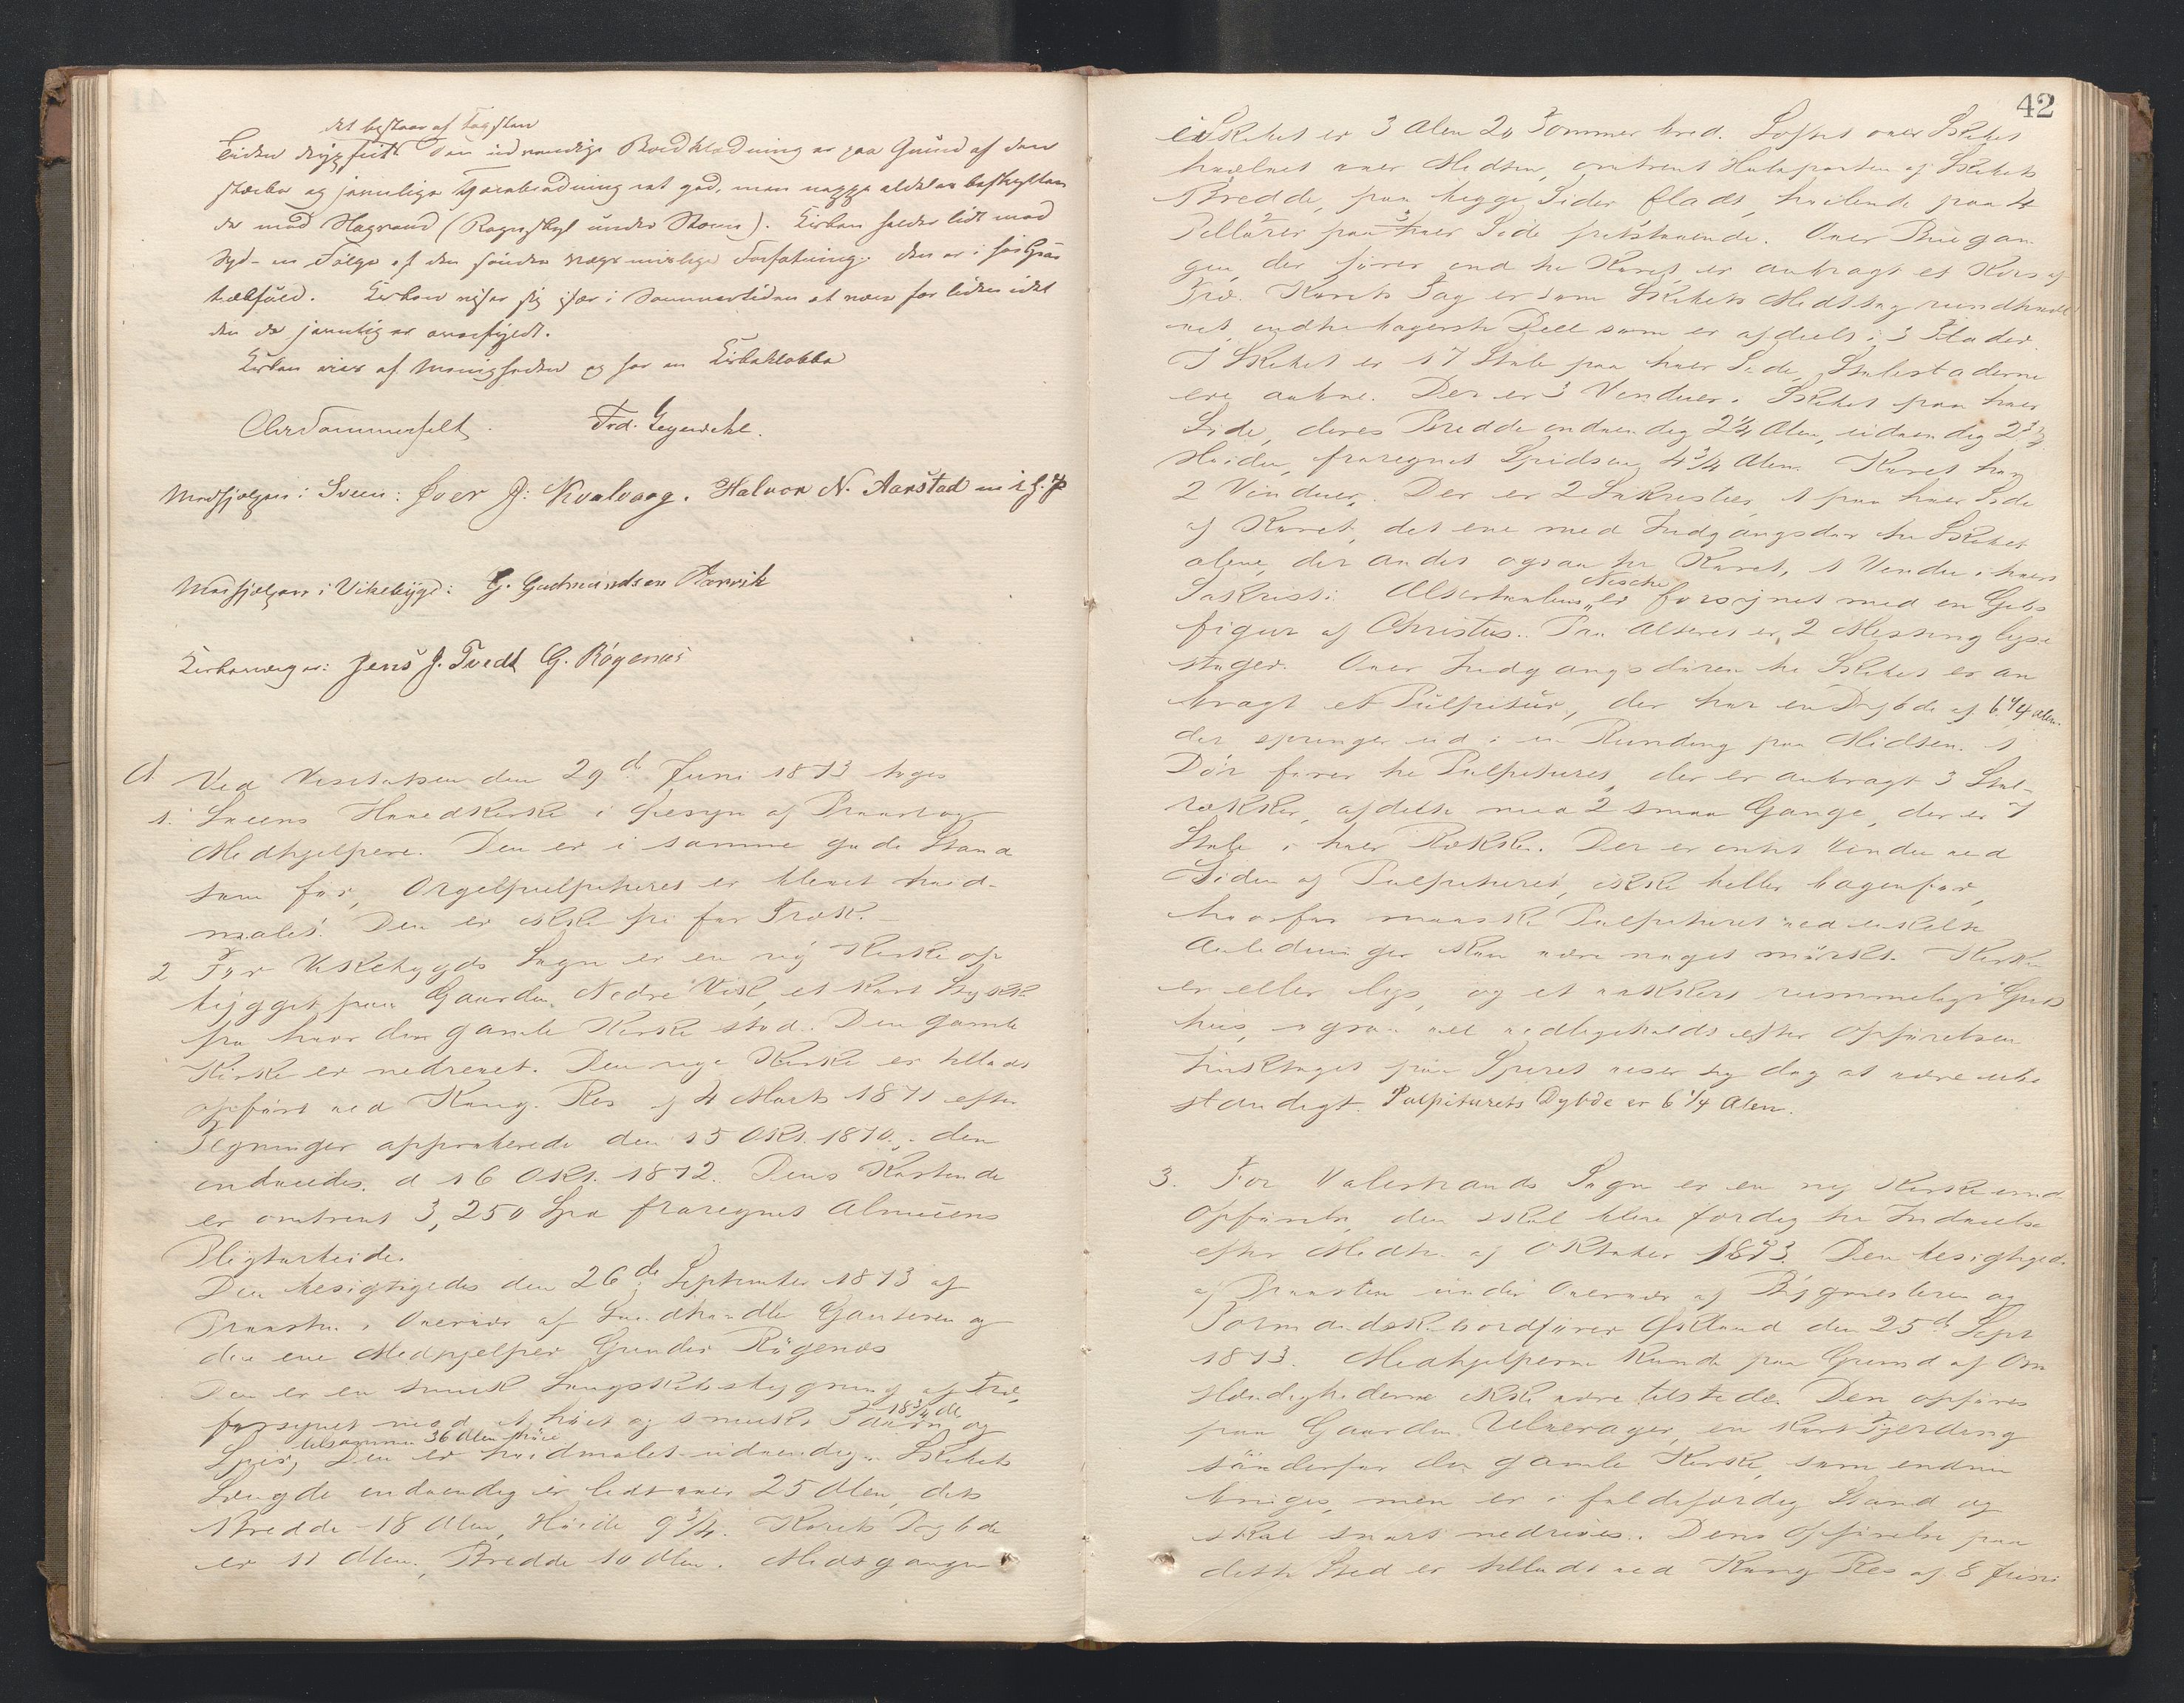 det bestaar af Tagsten
Siden dryppeiet. Den udvendige Bordklædning er paa Grund af den
stærke og jevnlige Tjærebredning ret god, men neppe aldeles beskyttende
mod Slagvand (Regnskyl under Storm). Kirken helder lidt mod
Syd - en Følge af den
Kirken viser sig især i Sommertiden at være for liden idet
den da jevnlig er overfyldt.
Kirken eies af Menigheden og har en Kirkeklokke
Chr Sommerfelt. Frd. Gegwehl.
Medhjælpere i Sveen: Iver J: Kvalvaag. Halvor N. Aarstad m i h. P
Medhjælpere i Vikebygd: G. Gudmundsen Tarvik
Kirkeværger: Jens J. Tvedt G. Rögenæs
A Ved Visitatsen den 29de Juni 1873 toges
1. Sveens Hovedkirke i Øiesyn af Provst og
Medhjelpere. Den er i samme gode Stand
som før, Orgelpulpituret er blevet hvid-
malet. Den er ikke fri for Træk. -
2 For Vikebygds Sogn er en ny Kirke op
bygget paa Gaarden Nedre Vik, et kort Stykke
fra hvor den gamle Kirke stod. Den gamle
Kirke er nedrevet. Den nye Kirke er tilladt
opført ved Kong. Res. af 4 Marts 1871 efter
Tegninger approberede den 15 Okt. 1870, den
indviedes d 16 Okt. 1872. Dens Kostende
er omtrent 3,250 Spd fraregnet Almuens
Pligtarbeide.
Den besigtigedes den 26de September 1873 af
Provsten i Overvær af Landhandler Gautesen og
den ene Medhjelper Gunder Rögenæs
Den er en smuk Langskibsbygning af Træ,
forsynet med et høit og smukt Taarn 18 3/4 Al og
Spir, tilsammen 36 Alen høie Den er hvidmalet udvendig. Skibets
Længde indvendig er lidt over 25 Alen, dets
Bredde 18 Alen, Høide 9 3/4. Korets Dybde
er 11 Alen, Bredde 10 Alen. Midtgangen
42
i Skibet er 3 Alen 20 Tommer bred. Loftet over Skibet
hvælvet over Midten, omtrent Halvparten af Skibets
Bredde, paa begge Sider fladt, hvilende paa 4
Pillarer paa hver Side fritstaaende. Over Buegan
gen, der fører ind til Koret er anbragt et Kors af
Træ. Korets Tag er som Skibets Midttag rundhvæl
vet indtil bagerste Deel som er afdeelt i 3 Flader.
I Skibet er 17 Stole paa hver Side, Stolestaderne
ere aabne. Der er 3 Vinduer i Skibet paa hver
Side, deres Bredde indvendig 2 1/4 Alen, udvendig 2
Høiden, fraregnet Spidsen, 4 3/4 Alen. Koret har
2 Vinduer. Der er 2 Sakristier, 1 paa hver Side
af Koret, det ene med Indgangsdør til Skibet
alene, det andet ogsaa til Koret, 1 Vindu i hvert
Sakristi. Altertavlens Nische er forsynet med en Gibs
figur af Christus. Paa Alteret er 2 Messing lyse
stager. Over Indgangsdøren til Skibet er an
bragt et Pulpitur, der har en Dybde af 6 1/4 Alen.
det springer ud i en Runding paa Midten. 1
Dör fører til Pulpituret, der er anbragt 3 Stol-
rækker, afdelte med 2 smaa Gange, der er 7
Stole i hver Række. Der er intet Vindu ved
Siden af Pulpituret, ikke heller bagenfor,
hvorfor maaske Pulpituret ved enkelte
Anledninger kan være noget mørkt. Kirken
er eller lys, og et vakkert rummeligt Guds
hus, ogsaa vel vedligeholdt efter Opførelsen
Zinktaget paa Spiret viser sig dog at være ube
standigt. Pulpiturets Dybde er 6 1/4 Alen.
3. For Valestrands Sogn er en ny Kirke und
Opførelse, den skal blive færdig til Indvielse
efter Midten af Oktober 1873. Den besigtigedes
af Provsten under Overvær af Bygmesteren og
Formandskabsordfører Økland den 25de Sept
1873. Medhjelperne kunde paa Grund af Om
stændighederne ikke være tilstede. Den opføres
paa Gaarden Ulverager, en kort Fjerding
sønderfor den gamle Kirke, som endnu
bruges, men er i faldefærdig Stand og
skal snart nedrives. Dens Opførelse paa
dette Sted er tilladt ved Kong Res af 8 Juni